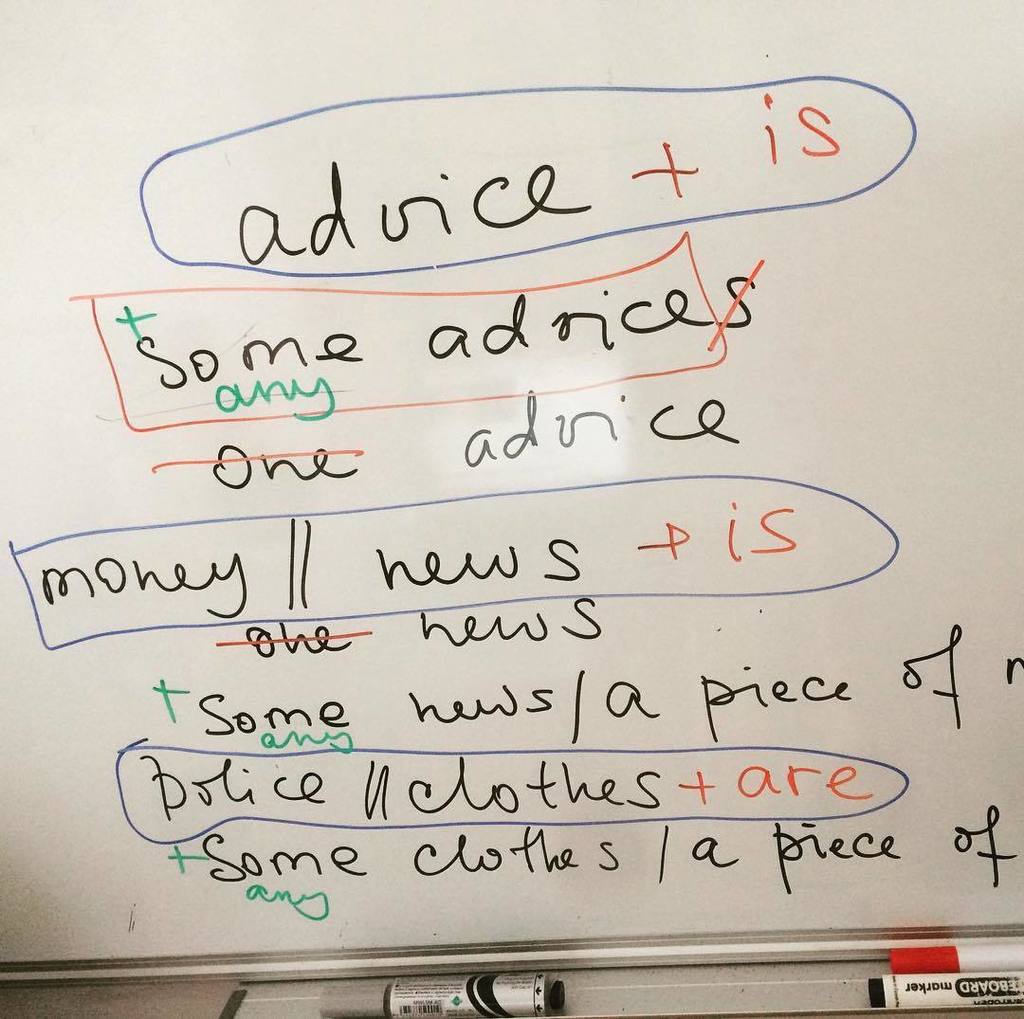 advice + is
+
Some advices
any
one advice
money || news → is
one news
+ Some news / a piece of
any
police || clothes + are
+ Some clothes / a piece of
any
BOARD marker